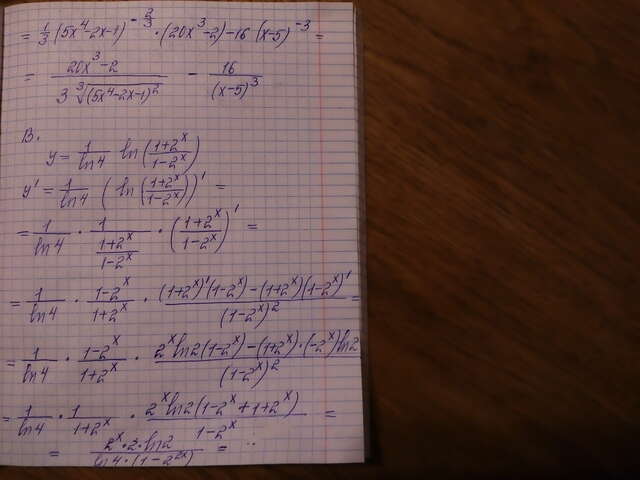 = 1/3 (5x⁴-2x-1)^(-2/3) · (20x³-2) - 16 (x-5)^(-3) =
= (20x³-2)/(3 ∛((5x⁴-2x-1)²)) - 16/(x-5)³
В.
y = 1/ln4 ln((1+2ˣ)/(1-2ˣ))
y' = 1/ln4 (ln((1+2ˣ)/(1-2ˣ)))' =
= 1/ln4 · 1/((1+2ˣ)/(1-2ˣ)) · ((1+2ˣ)/(1-2ˣ))' =
= 1/ln4 · (1-2ˣ)/(1+2ˣ) · ((1+2ˣ)'(1-2ˣ)-(1+2ˣ)(1-2ˣ)')/(1-2ˣ)² =
= 1/ln4 · (1-2ˣ)/(1+2ˣ) · (2ˣ ln2(1-2ˣ)-(1+2ˣ)·(-2ˣ)ln2)/(1-2ˣ)²
= 1/ln4 · 1/(1+2ˣ) · (2ˣ ln2(1-2ˣ+1+2ˣ))/(1-2ˣ) =
= (2ˣ·2·ln2)/(ln4·(1-2²ˣ)) = ..